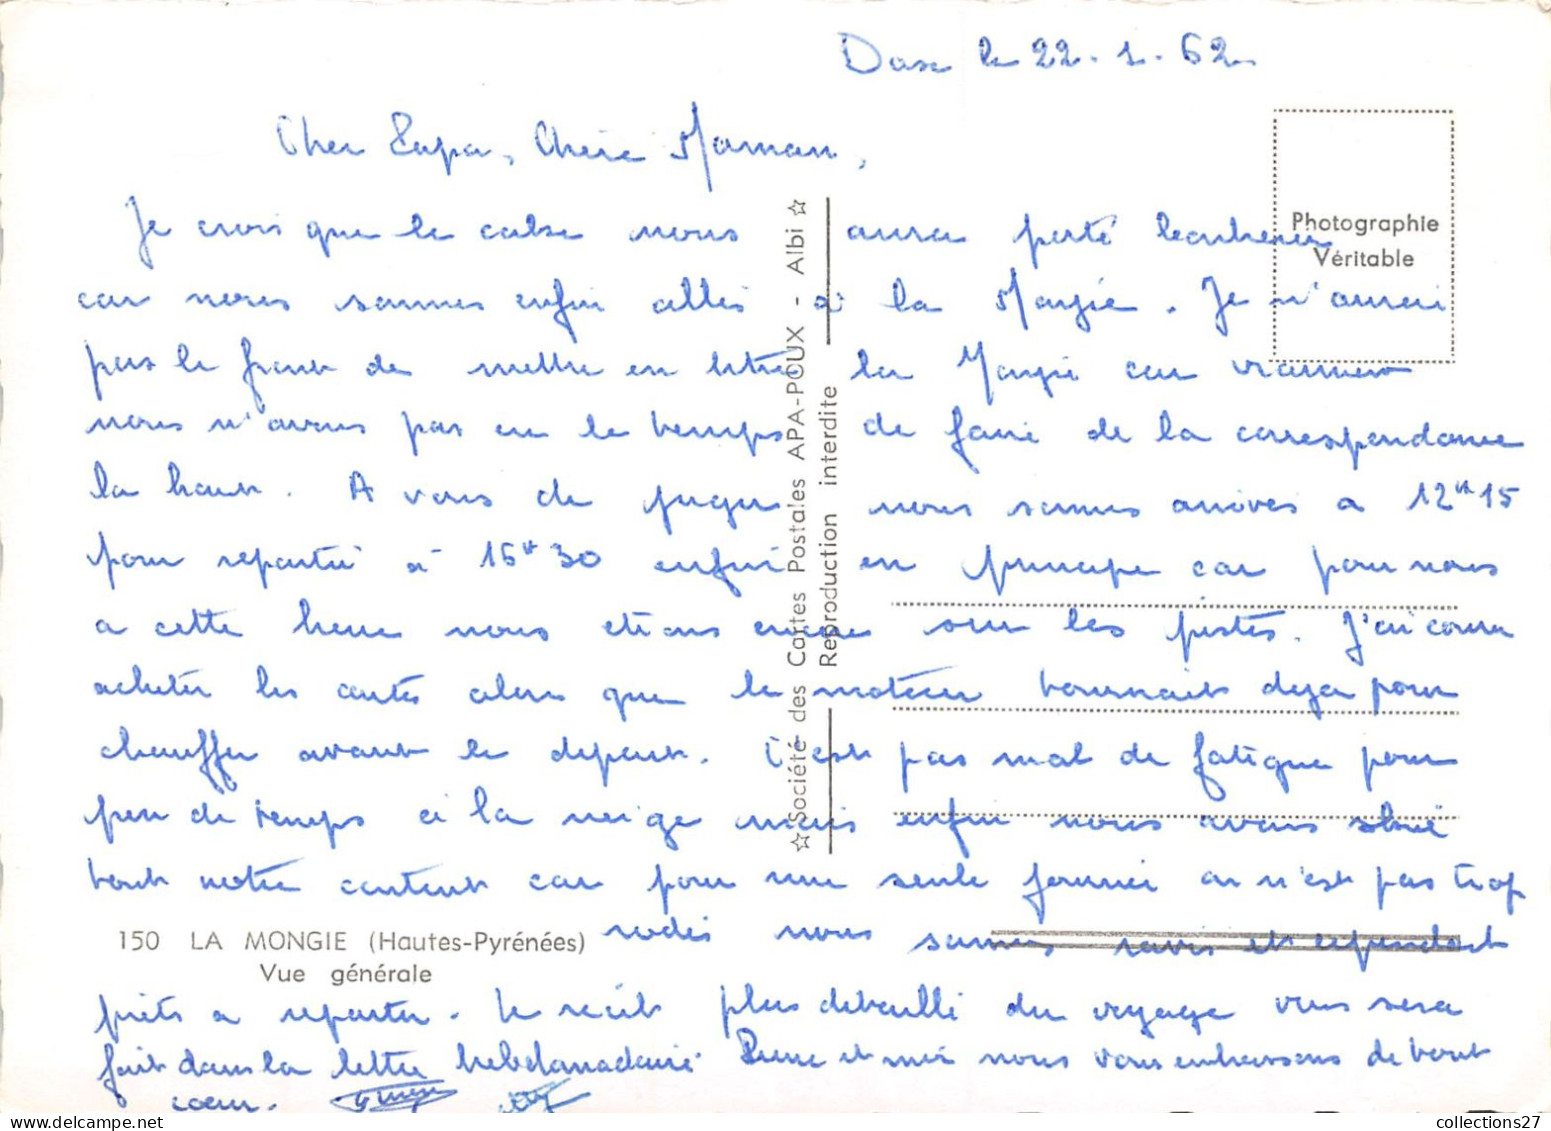 Dax le 22.1.62
Cher Papa, Chère Maman,
Je crois que le calse nous aura porté bonheur
car nous sommes enfin allés à la Mongie. Je n'aurai
pas le front de mettre en titre la Mongie car vraiment
nous n'avons pas eu le temps de faire de la correspondance
la haut. A vous de juger nous sommes arrivés a 12H15
pour repartir à 16H30 enfin en principe car pour nous
a cette heure nous etions encore sur les pistes. J'ai couru
acheter les cartes alors que le moteur tournait deja pour
chauffer avant le depart. C'est pas mal de fatigue pour
peu de temps à la neige mais enfin nous avons skié
tout notre content car pour une seule journée on n'est pas trop
rodés nous sommes ravis et cependant
prêts a repartir. Le récit plus detaillé du voyage vous sera
fait dans la lettre hebdomadaire. Pierre et moi nous vous embrassons de tout
cœur.
Photographie
Véritable
☆ Société des Cartes Postales APA-POUX - Albi ☆
Reproduction interdite
150 LA MONGIE (Hautes-Pyrénées)
Vue générale
collections27